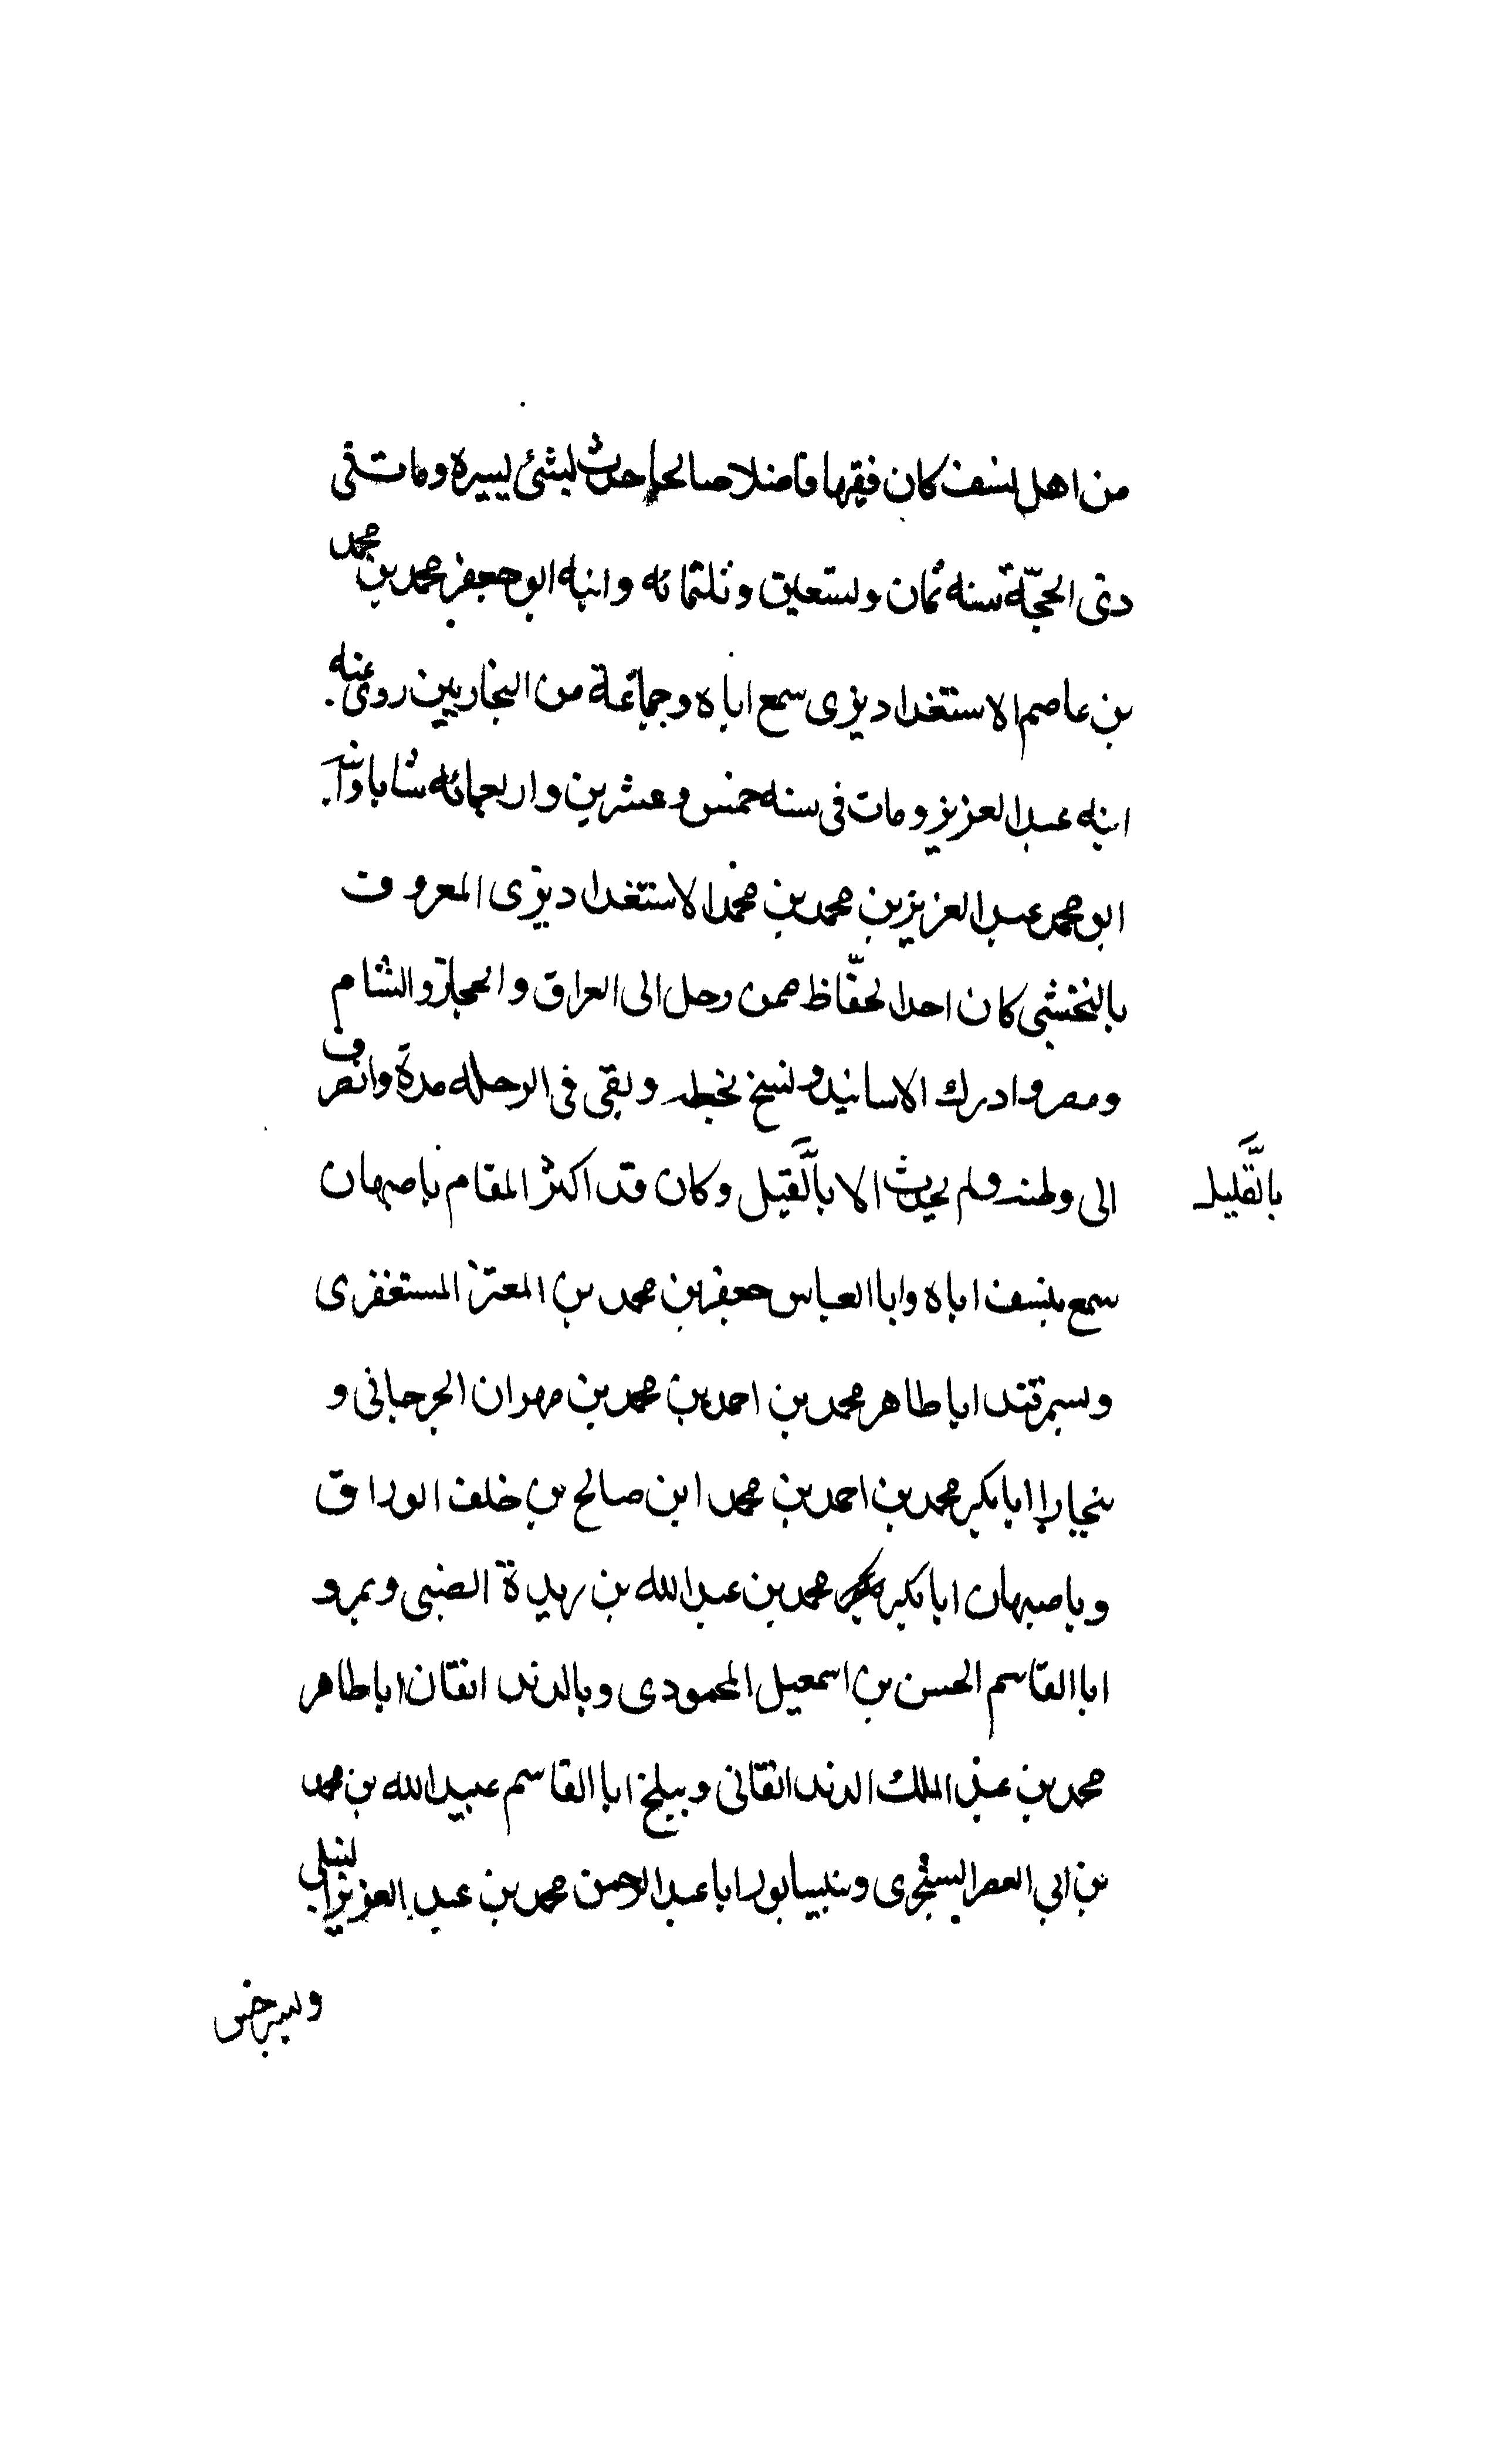 من اهل نسف كان فقيها فاضلا صالحا حدث بشئ يسيره ومات فى
ذى الحجّة سنه ثمان وتسعين وثلثمائه وابنه ابو جعفر محمد بن محمد
بن عاصم الاستغداديزى سمع اباه وجماعة من البخاريين روى عنه
ابنه عبد العزيز ومات فى سنه خمس وعشرين واربعمائه شابا وابنه
ابو محمد عبد العزيز بن محمد بن محمد الاستغداديزى المعروف
بالنخشبى كان احد الحفّاظ ممن رحل الى العراق والحجاز والشام
ومصر وادرك الاسانيد ونسخ بخطه وبقى فى الرحله مدة وانصرف
الى وطنه ولم يحدث الا بالّقيل وكان قد اكثر المقام باصبهان
بالّقليل
سمع بنسف اباه وابا العباس جعفر بن محمد بن المعتز المستغفرى
وبسمرقند ابا طاهر محمد بن احمد بن محمد بن مهران الجرجانى و
ببخارا ابا بكر محمد بن احمد بن محمد ابن صالح بن خلف الوراق
وباصبهان ابا بكر محمد بن عبد الله بن ريدة الضبى وبمرو
ابا القاسم الحسن بن اسمعيل المحمودى وبالدندانقان ابا طاهر
محمد بن عبد الملك الدندانقانى وببلخ ابا القاسم عبيد الله بن محمد
بن ابى العصر البسنجرى وبنيسابور ابا عبد الرحمن محمد بن عبد العزيز النيلى
وبسرخس